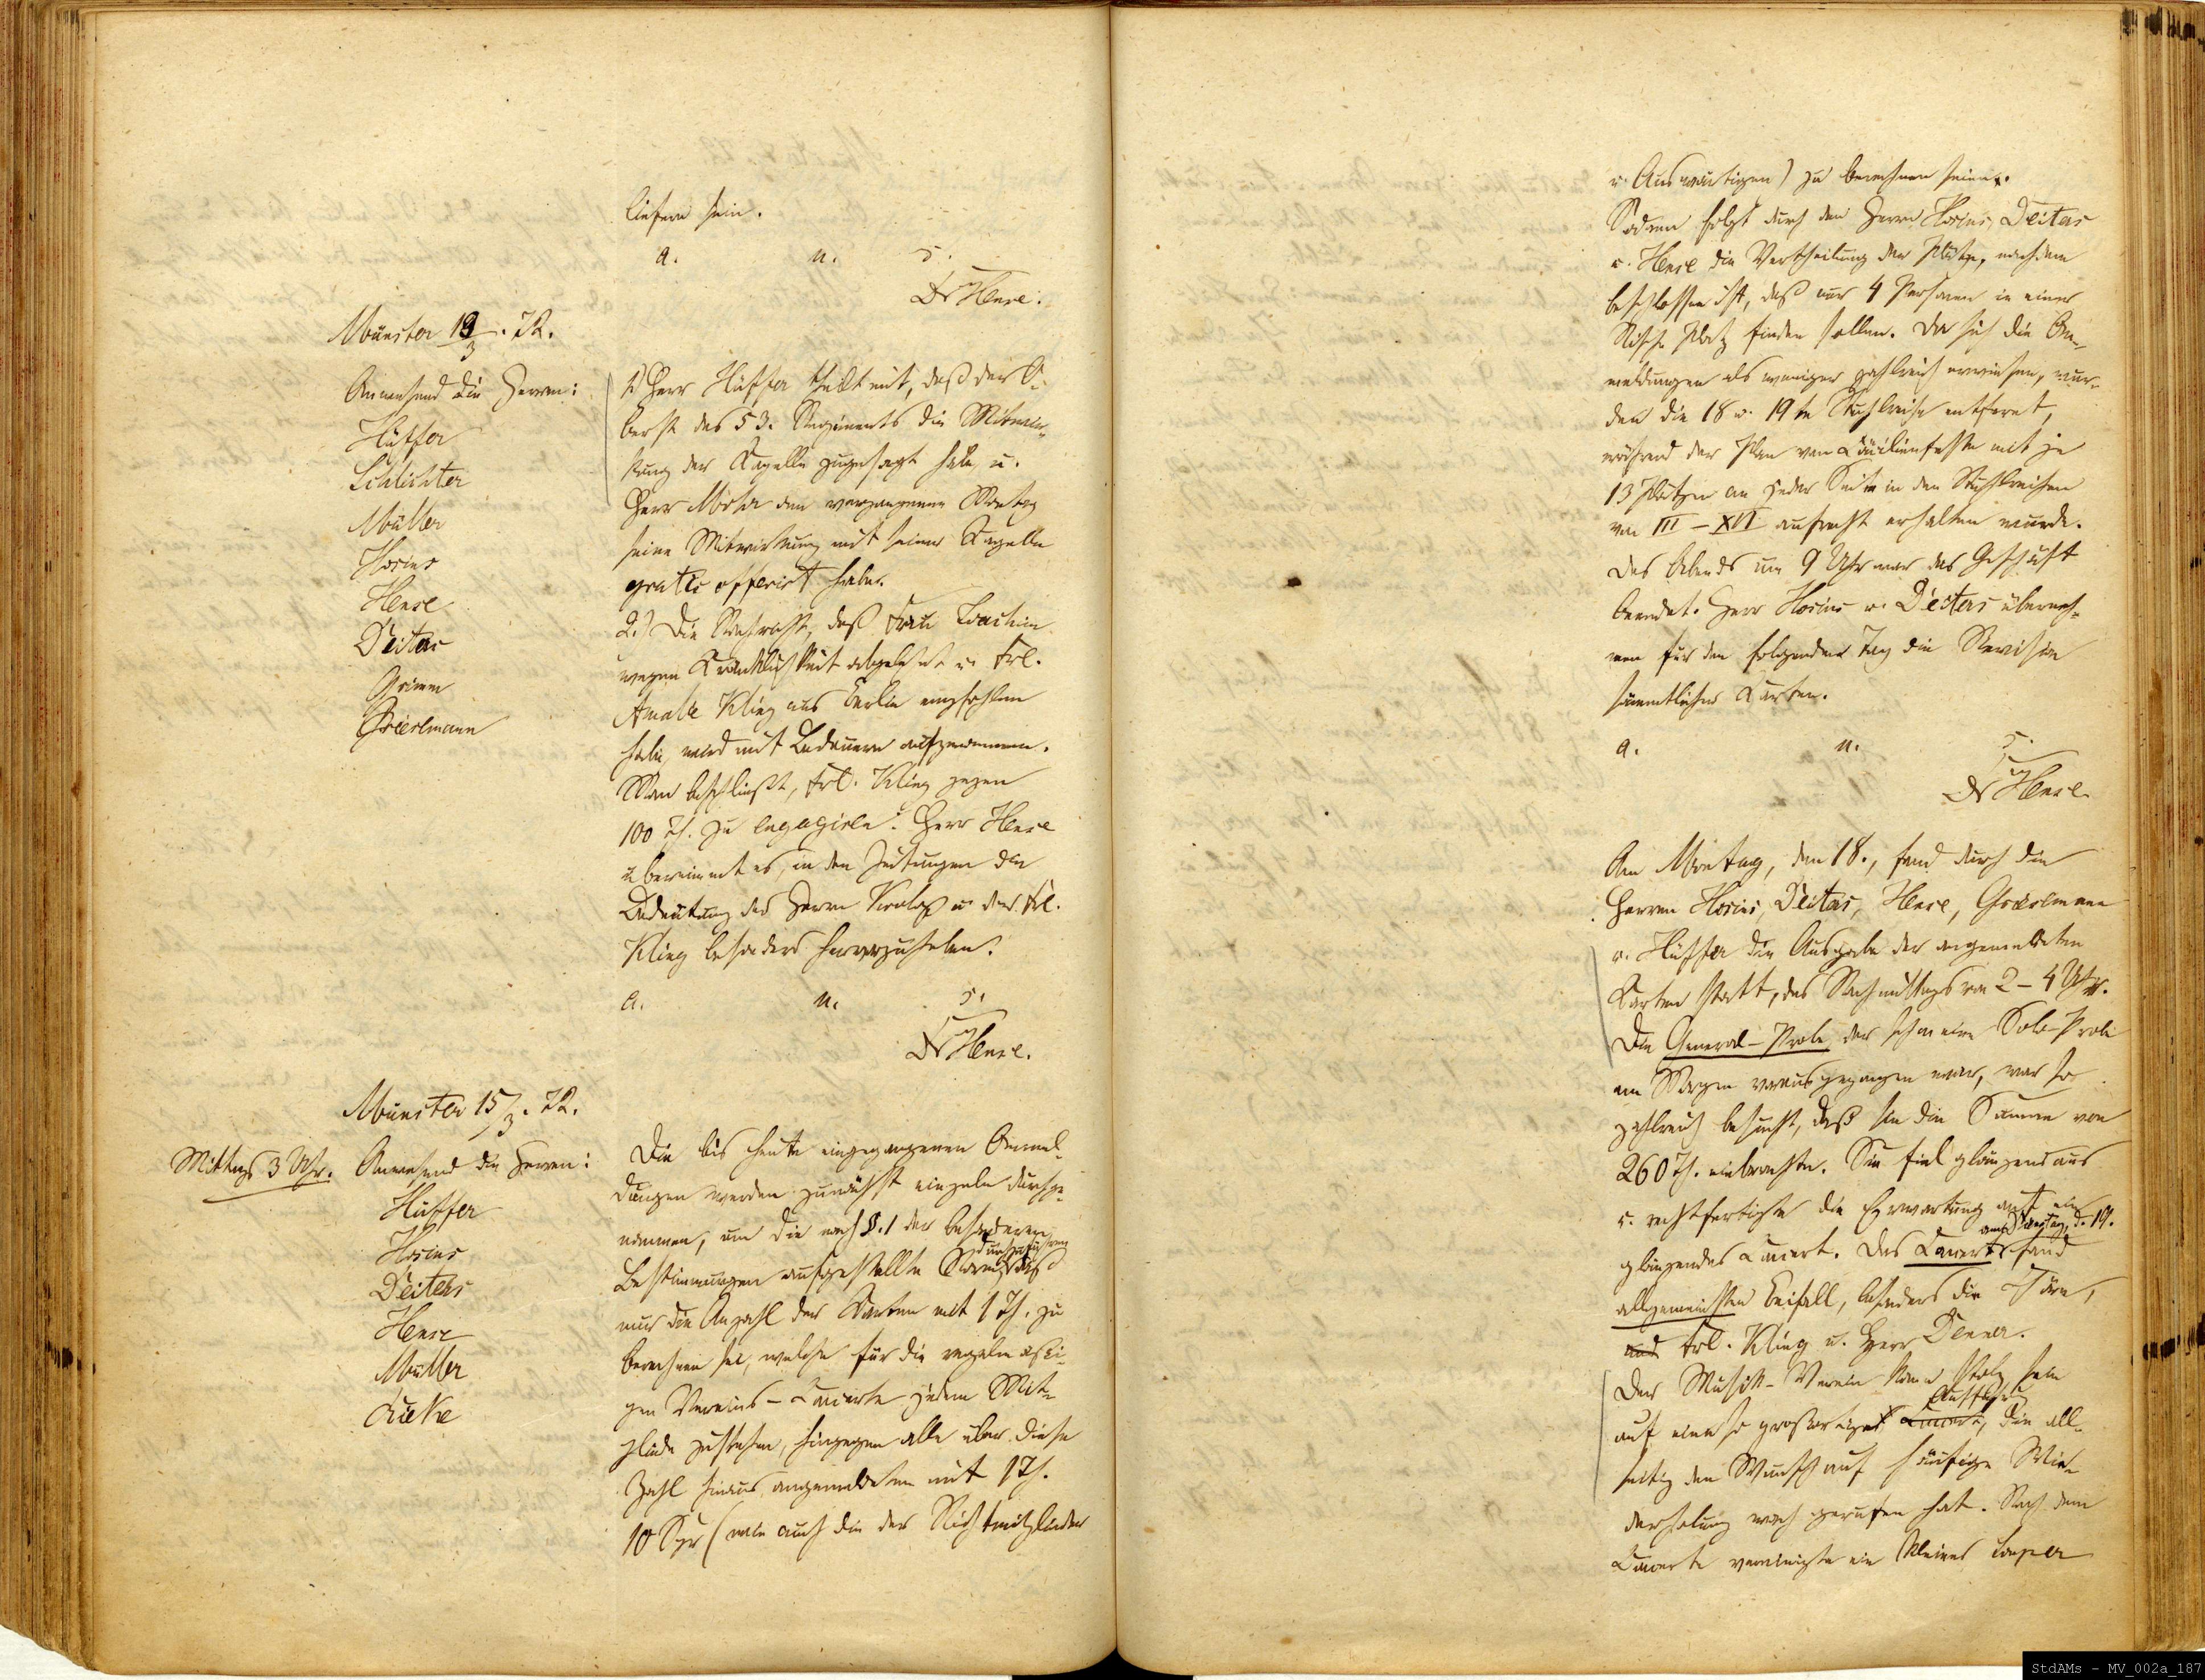 liefern sein.
a. u. s.
Dr Hense.
Münster 13/3. 72.
Anwesend die Herren:
Hüffer
Schlichter
Müller
Hosius
Hense
Deiters
Grimm
Grüelmann
1) Herr Hüffer theilt mit, daß der O-
berst des 53. Regiments die Mitwir-
kung der Kapelle zugesagt habe, u.
Herr Moser am vergangenen Montag
seine Mitwirkung mit seiner Kapelle
gratis offerirt habe.
2.) Die Nachricht, daß Frau Joachim
wegen Kränklichkeit abgelehnt u. Frl.
Amalie Kling aus Berlin empfohlen
habe, wird mit Bedauern aufgenommen.
Man beschließt, Frl. Kling gegen
100 Th. zu engagiren. Herr Hense
übernimmt es, in den Zeitungen die
Bedeutung des Herrn u. der Frl.
Kling besonders hervorzuheben.
a. u. s.
Dr Hense.
Münster 15/3. 72.
Mittags 3 Uhr. Anwesend die Herren:
Hüffer
Hosius
Deiters
Hense
Müller
Lücke
Die bis heute eingegangenen Anmel-
dungen werden zunächst einzeln durchge-
nommen, um die nach §. 1 der besonderen
durchzuführen
Bestimmungen aufgestellte Norm, daß
nur die Anzahl der Karten mit 1 Th. zu
berechnen sei, welche für die regelmäßi-
gen Vereins-Concerte jedem Mit-
gliede zustehen, hingegen alle über diese
Zahl hinaus angemeldeten mit 1 Th.
10 Sgr (wie auch die der Nichtmitglieder
u. Auswärtigen) zu berechnen seien.
Sodann folgt durch die Herren Hosius, Deiters
u. Hense die Vertheilung der Plätze, nachdem
beschlossen ist, daß nur 4 Personen in einer
Nische Platz finden sollen. Da sich die An-
meldungen als weniger zahlreich erwiesen, wur-
den die 18 u. 19te Stuhlreihe entfernt,
während der Plan vom Cäcilienfeste mit je
13 Plätzen an jeder Seite in den Stuhlreihen
von III – XVI aufrecht erhalten wurde.
Des Abends um 9 Uhr war das Geschäft
beendet. Herr Hosius u. Deiters überneh-
men für den folgenden Tag die Revision
sämmtlicher Karten.
a. u. s.
Dr Hense.
Am Montag, den 18., fand durch die
Herren Hosius, Deiters, Hense, Grüelmann
u. Hüffer die Ausgabe der angemeldeten
Karten statt, des Nachmittags von 2 – 4 Uhr.
Die General-Probe, der schon eine Solo-Probe
am Morgen vorausgegangen war, war so
zahlreich besucht, daß sie die Summe von
260 Th. einbrachte. Sie fiel glänzend aus
u. rechtfertigte die Erwartung auf ein
am Dienstag, d. 19.
glänzendes Concert. Das Concert fand
allgemeinsten Beifall, besonders die Chöre,
und Frl. Kling u. Herr Denner.
Der Musik-Verein kann stolz sein
Aufführung
auf eine so großartige Concert, die all-
seitig den Wunsch auf häufige Wie-
derholung wach gerufen hat. Nach dem
Concerte vereinigte ein kleines Souper
StdAMs – MV_002a_187